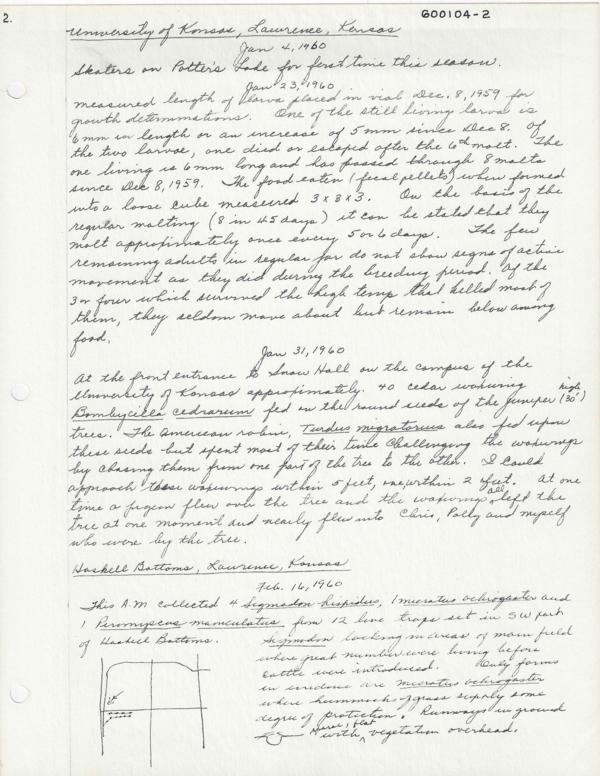 2.
G00104-2
University of Kansas, Lawrence, Kansas
Jan 4, 1960
Skaters on Potter's Lake for first time this season.
Jan 23, 1960
measured length of larva placed in vial Dec. 8, 1959 for
growth determinations. One of the still living larva is
6 mm in length or an increase of 5 mm since Dec 8. Of
the two larvae, one died or escaped after the 6th molt. The
one living is 6 mm long and has passed through 8 molts
since Dec 8, 1959. The food eaten (fecal pellets) when formed
into a loose cube measured 3 x 3 x 3. On the basis of the
regular molting (8 in 45 days) it can be stated that they
molt approximately once every 5 or 6 days. The few
remaining adults in regular jar do not show signs of active
movement as they did during the breeding period. Of the
3 or four which survived the high temp that killed most of
them, they seldom move about but remain below among
food.
Jan 31, 1960
At the front entrance to Snow Hall on the campus of the
University of Kansas approximately 40 cedar waxwing
Bombycilla cedrarum fed on the round seeds of the juniper high (30')
trees. The American robin, Turdus migratorius also fed upon
these seeds but spent most of their time challenging the waxwings
by chasing them from one part of the tree to the other. I could
approach these waxwings within 5 feet, one within 2 feet. At one
time a pigeon flew over the tree and the waxwings all left the
tree at one moment and nearly flew into Chris, Polly and myself
who were by the tree.
Haskell Bottoms, Lawrence, Kansas
Feb. 16, 1960
This A.M collected 4 Sigmodon hispidus, 1 microtus ochrogaster and
1 Peromyscus maniculatus from 12 live traps set in SW part
of Haskell Bottoms.
Sigmodon lacking in areas of main field
where great number were living before
cattle were introduced. Only forms
in evidence are microtus ochrogaster
where hummock of grass supply some
degree of protection. Runways in ground
with flat vegetation overhead.